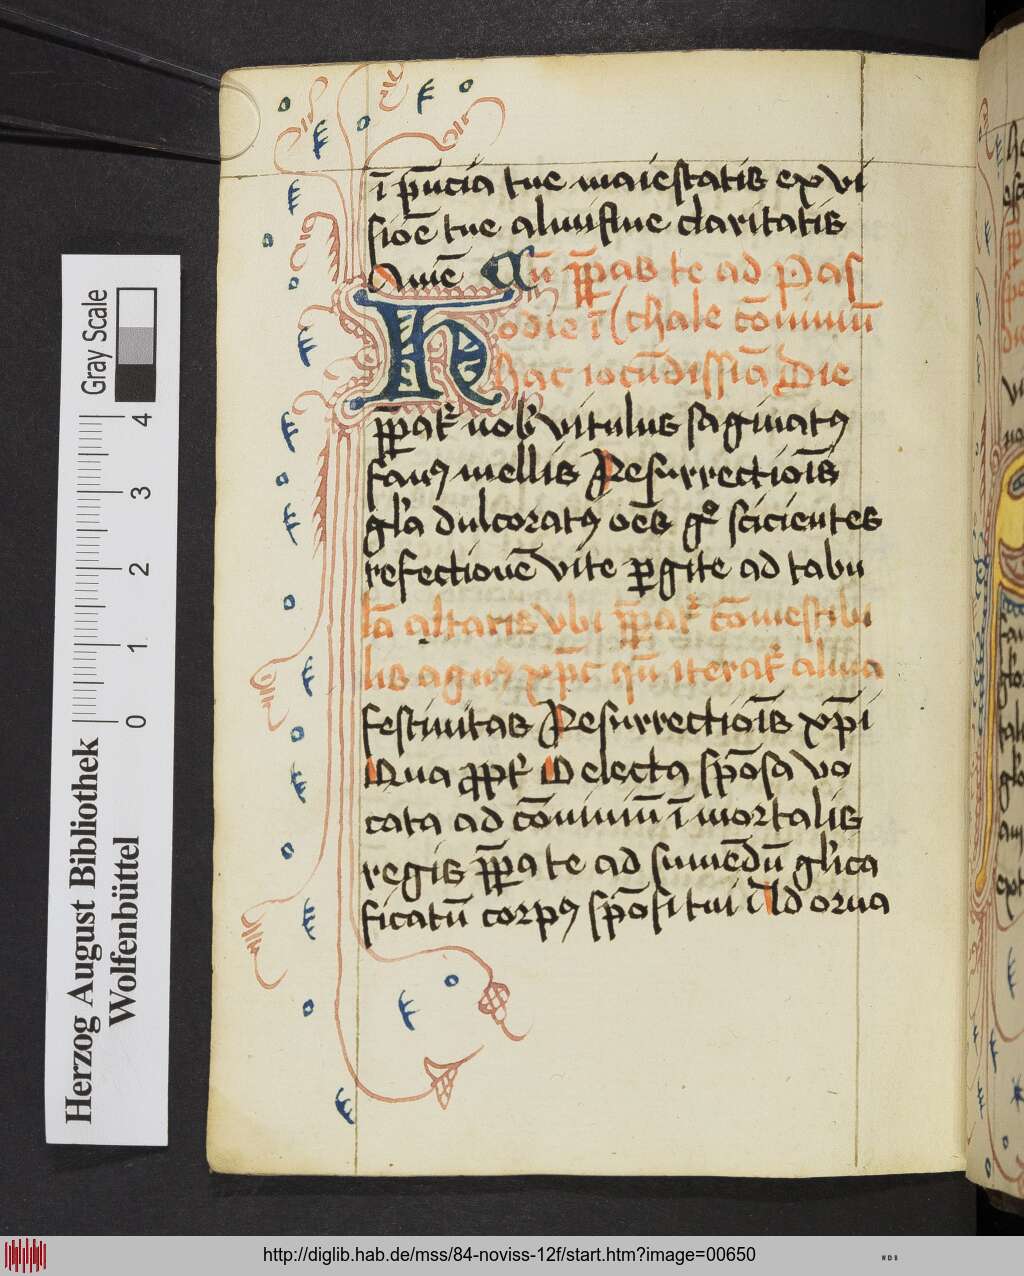 ī p̄ncia tue maiestatis ex vi
sioē tue almiflue claritatis
Amē Cū p̄pas te ad Pas
Hodie ī (chale cōuiuiū
hac iocūdissīa Die
p̄pat᷑ nob᷑ vitulus saginatꝯ
fauꝯ mellis Resurrectiōis
gl᷑a dulcoratꝯ oēs gͦ scicientes
refectionē vite ꝑgite ad tabu
lā altaris vbi p̄pat᷑ cōmestibi
lis agnꝯ xp̄c qn̄ iterat᷑ alma
festiuitas Resurrectiōis xp̄i
Qua ꝓpt᷑ O electa spōsa vo
cata ad cōuiuiū īmortalis
regis p̄pa te ad sumēdū gl᷑ica
ficatū corpꝯ spōsi tui ī Ad orna
Herzog August Bibliothek
Wolfenbüttel
Gray Scale
0 1 2 3 4
http://diglib.hab.de/mss/84-noviss-12f/start.htm?image=00650